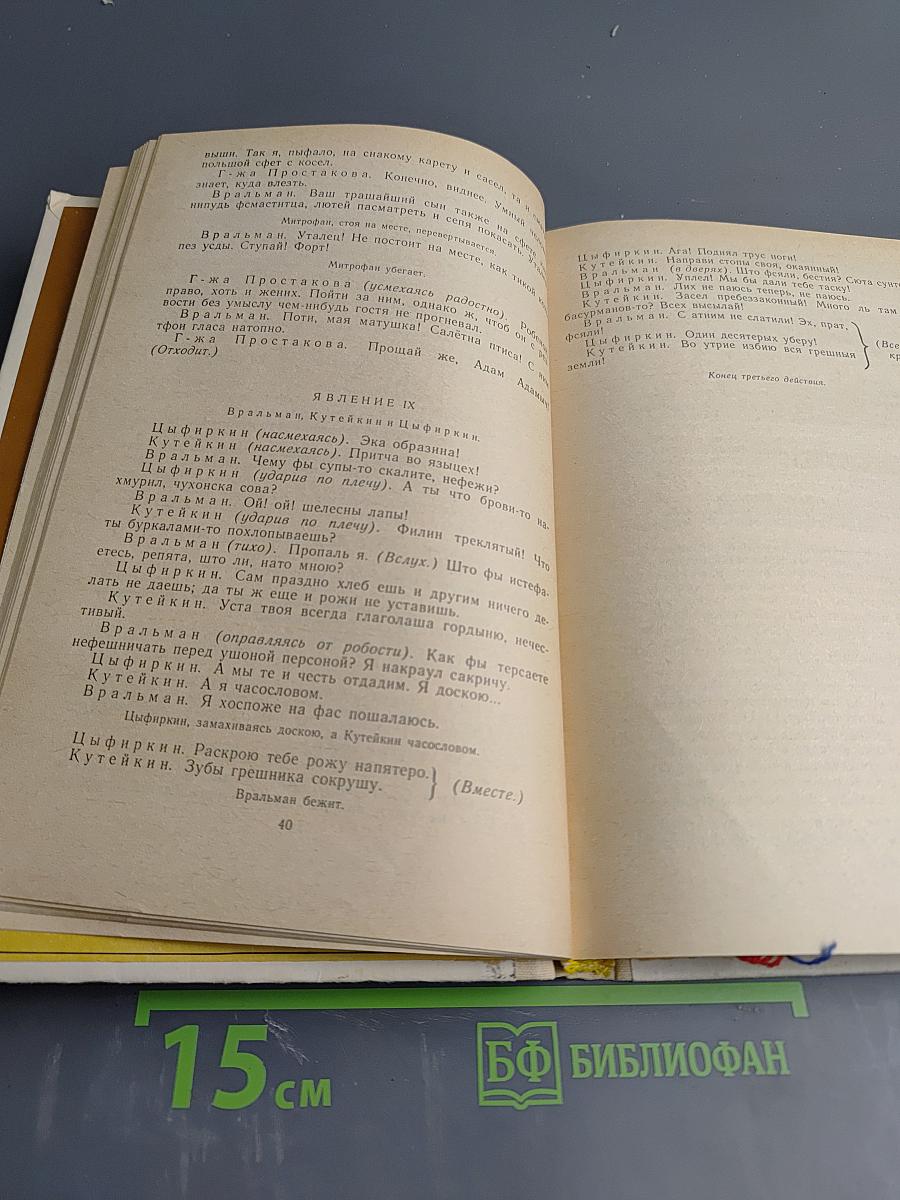 выши. Так я, пыфало, на снакому карету и сасел, та и
польшой сфет с косел.
Г-жа Простакова. Конечно, виднее. Умный
знает, куда влезть.
Вральман. Ваш трашайший сын также на сфете
нипудь фсмаститца, лютей пасматреть и сепя покасать.
Митрофан, стоя на месте, перевертывается.
Вральман. Уталец! Не постоит на месте, как тикой
пез усды. Ступай! Форт!
Митрофан убегает.
Г-жа Простакова (усмехаясь радостно).
право, хоть и жених. Пойти за ним, однако ж, чтоб он с
вости без умыслу чем-нибудь гостя не прогневал.
Вральман. Поти, мая матушка! Салётна птиса! С ним
тфои гласа натопно.
Г-жа Простакова. Прощай же, Адам Адамыч!
(Отходит.)
ЯВЛЕНИЕ IX
Вральман, Кутейкин и Цыфиркин.
Цыфиркин (насмехаясь). Эка образина!
Кутейкин (насмехаясь). Притча во языцех!
Вральман. Чему фы супы-то скалите, нефежи?
Цыфиркин (ударив по плечу). А ты что брови-то на-
хмурил, чухонска сова?
Вральман. Ой! ой! шелесны лапы!
Кутейкин (ударив по плечу). Филин треклятый! Что
ты буркалами-то похлопываешь?
Вральман (тихо). Пропаль я. (Вслух.) Што фы истефа-
етесь, репята, што ли, нато мною?
Цыфиркин. Сам праздно хлеб ешь и другим ничего де-
лать не даешь; да ты ж еще и рожи не уставишь.
Кутейкин. Уста твоя всегда глаголаша гордыню, нечес-
тивый.
Вральман (оправляясь от робости). Как фы терсаете
нефешничать перед ушоной персоной? Я накраул сакричу.
Цыфиркин. А мы те и честь отдадим. Я доскою...
Кутейкин. А я часословом.
Вральман. Я хоспоже на фас пошалаюсь.
Цыфиркин, замахиваясь доскою, а Кутейкин часословом.
Цыфиркин. Раскрою тебе рожу напятеро.
Кутейкин. Зубы грешника сокрушу. } (Вместе.)
Вральман бежит.
40
Цыфиркин. Ага! Поднял трус ноги!
Кутейкин. Направи стопы своя, окаянный!
Вральман (в дверях). Што фсяли, бестия? Сюта
Цыфиркин. Уплел! Мы бы дали тебе таску!
Вральман. Лих не паюсь теперь, не паюсь.
Кутейкин. Засел пребеззаконный! Много ль там
басурманов-то? Всех высылай!
Вральман. С атним не слатили! Эх, прат,
фсяли!
Цыфиркин. Один десятерых уберу! } (Все
Кутейкин. Во утрие избию вся грешныя
земли!
Конец третьего действия.
15 см
БФ БИБЛИОФАН